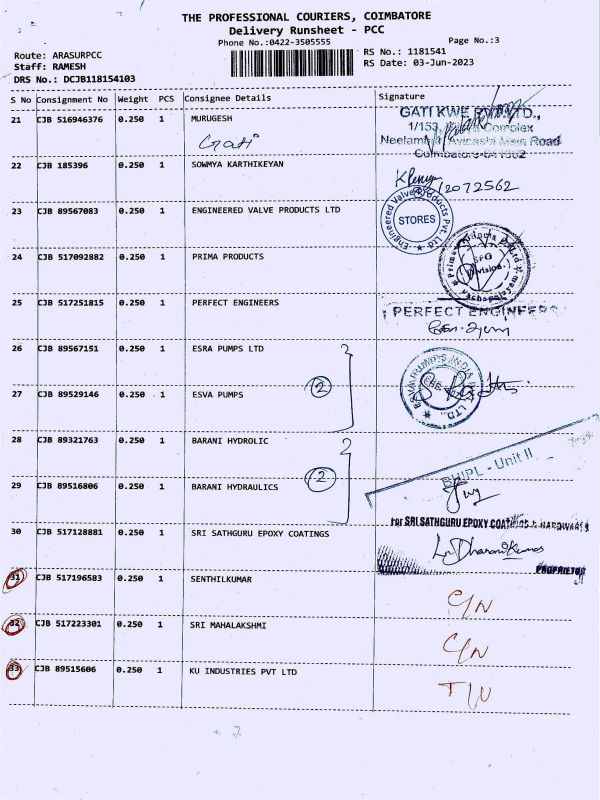 THE PROFESSIONAL COURIERS, COIMBATORE
Delivery Runsheet - PCC
Phone No.:0422-3505555
Page No.:3
Route: ARASURPCC
RS No.: 1181541
Staff: RAMESH
RS Date: 03-Jun-2023
DRS No.: DCJB118154103
S No Consignment No Weight PCS Consignee Details Signature
21 CJB 516946376 0.250 1 MURUGESH
Gati
GATI KWE PVT. LTD.,
1/153, Complex
Neelambur, Avinashi Main Road
22 CJB 185396 0.250 1 SOWMYA KARTHIKEYAN
23 CJB 89567083 0.250 1 ENGINEERED VALVE PRODUCTS LTD
Engineered Valve Products Pvt. Ltd.
STORES
24 CJB 517092882 0.250 1 PRIMA PRODUCTS
SPG
Division.
25 CJB 517251815 0.250 1 PERFECT ENGINEERS
PERFECT ENGINEERS
26 CJB 89567151 0.250 1 ESRA PUMPS LTD
27 CJB 89529146 0.250 1 ESVA PUMPS
2
28 CJB 89321763 0.250 1 BARANI HYDROLIC
BHIPL - Unit II
29 CJB 89516806 0.250 1 BARANI HYDRAULICS
2
30 CJB 517128881 0.250 1 SRI SATHGURU EPOXY COATINGS
For SRI SATHGURU EPOXY COATINGS & HARDWARES
PROPRIETOR
31 CJB 517196583 0.250 1 SENTHILKUMAR
C/N
32 CJB 517223301 0.250 1 SRI MAHALAKSHMI
C/N
33 CJB 89515606 0.250 1 KU INDUSTRIES PVT LTD